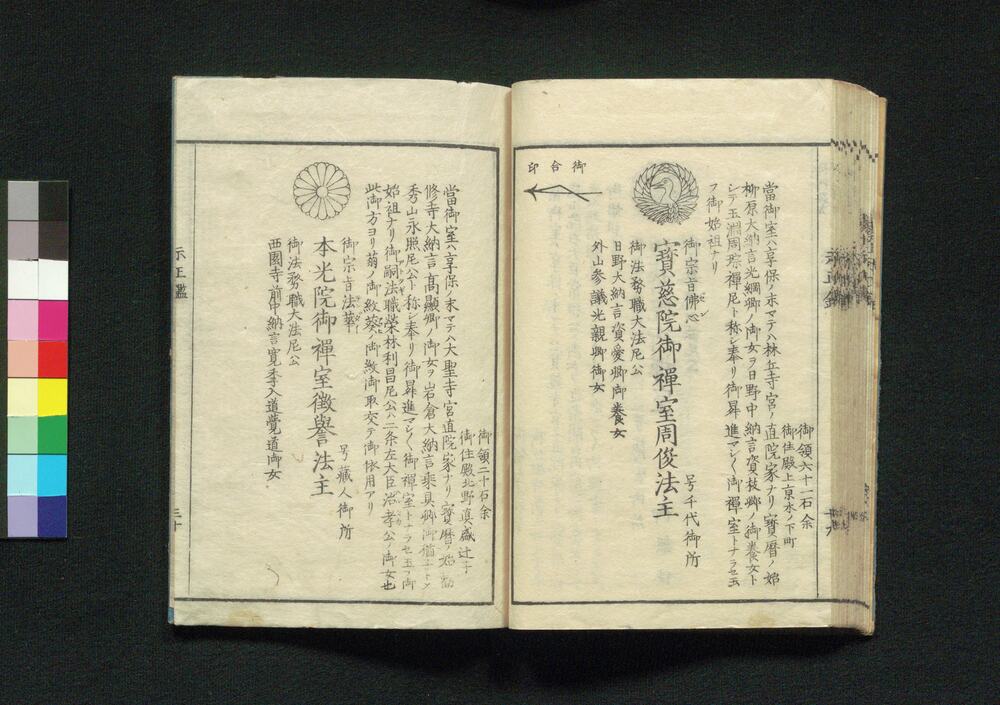 御領六十一石余
御住殿上京水ノ下町
當御室ハ享保ノ末マテハ林丘寺宮ノ直院家ナリ寳暦ノ始
柳原大納言光綱卿ノ御女ヲ日野中納言資枝卿ノ御養女ト
シテ玉淵周琮禪尼ト称シ奉リ御昇進マシ〱御禪室トナラセ玉
フ御始祖ナリ
御宗旨佛心
寳慈院御禪室周俊法主
号千代御所
御法務職大法尼公
日野大納言資愛卿御養女
外山参議光親卿御女
御合印
御領二十石余
御住殿北野真盛辻子
當御室ハ享保ノ末マテハ大聖寺宮直院家ナリ寳暦ノ始勧
修寺大納言髙顯卿ノ御女ヲ岩倉大納言乗具卿御猶子トメ
秀山永照尼公ト称シ奉リ御昇進マシ〱御禪室トナラセ玉フ御
始祖ナリ御嗣法職榮林利昌尼公ハ二条左大臣治孝公ノ御女也
此御方ヨリ菊ノ御紋葵ノ御紋御取交テ御依用アリ
御宗旨法華
本光院御禪室徴譽法主
号藏人御所
御法務職大法尼公
西園寺前中納言寛季入道覺道御女
三十